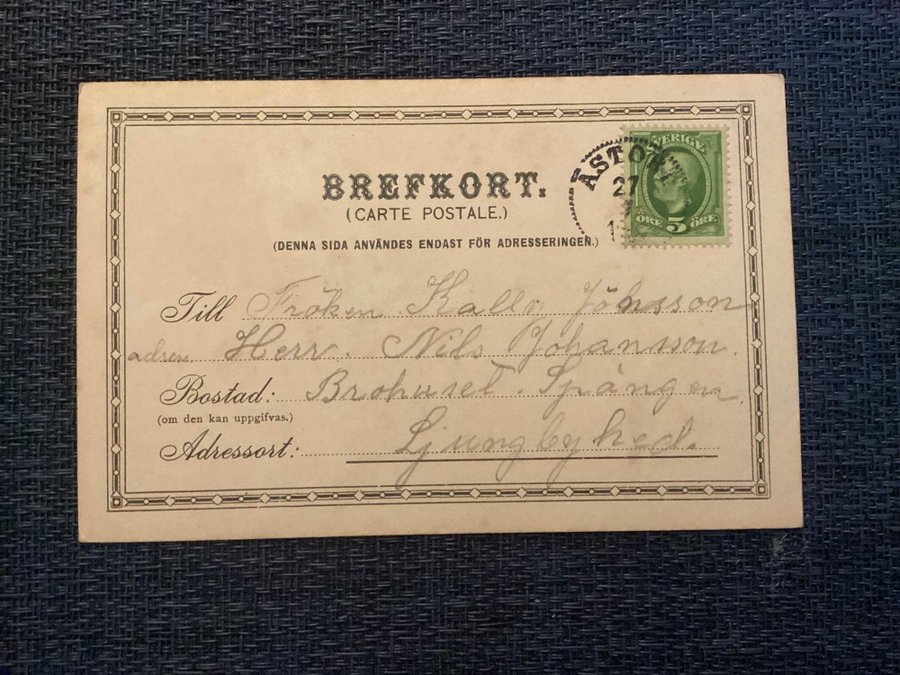 BREFKORT.
(CARTE POSTALE.)
(DENNA SIDA ANVÄNDES ENDAST FÖR ADRESSERINGEN.)
SVERIGE
ÖRE 5 ÖRE
ÅSTORP
27
Till Fröken Kally Jönsson
adress Herr. Nils Johansson.
Bostad: Brohuset. Spången.
(om den kan uppgifvas.)
Adressort: Ljungbyhed.